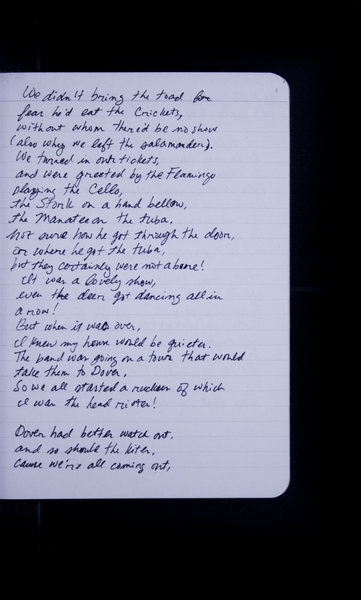 We didn't bring the toad for
fear he'd eat the Crickets,
without whom there'd be no show
(also why we left the salamander).
We turned in our tickets,
and were greeted by the Flamingo
playing the Cello,
the Stork on a hand bellow,
the Manatee on the tuba,
Not sure how he got through the door,
or where he got the tuba,
but they certainly were not a bore!
It was a lovely show,
even the deer got dancing all in
a row!
But when it was over,
I knew my house would be quieter.
The band was going on a tour that would
take them to Dover,
So we all started a ruckus of which
I was the head rioter!
Dover had better watch out,
and so should the kites,
cause we're all coming out,